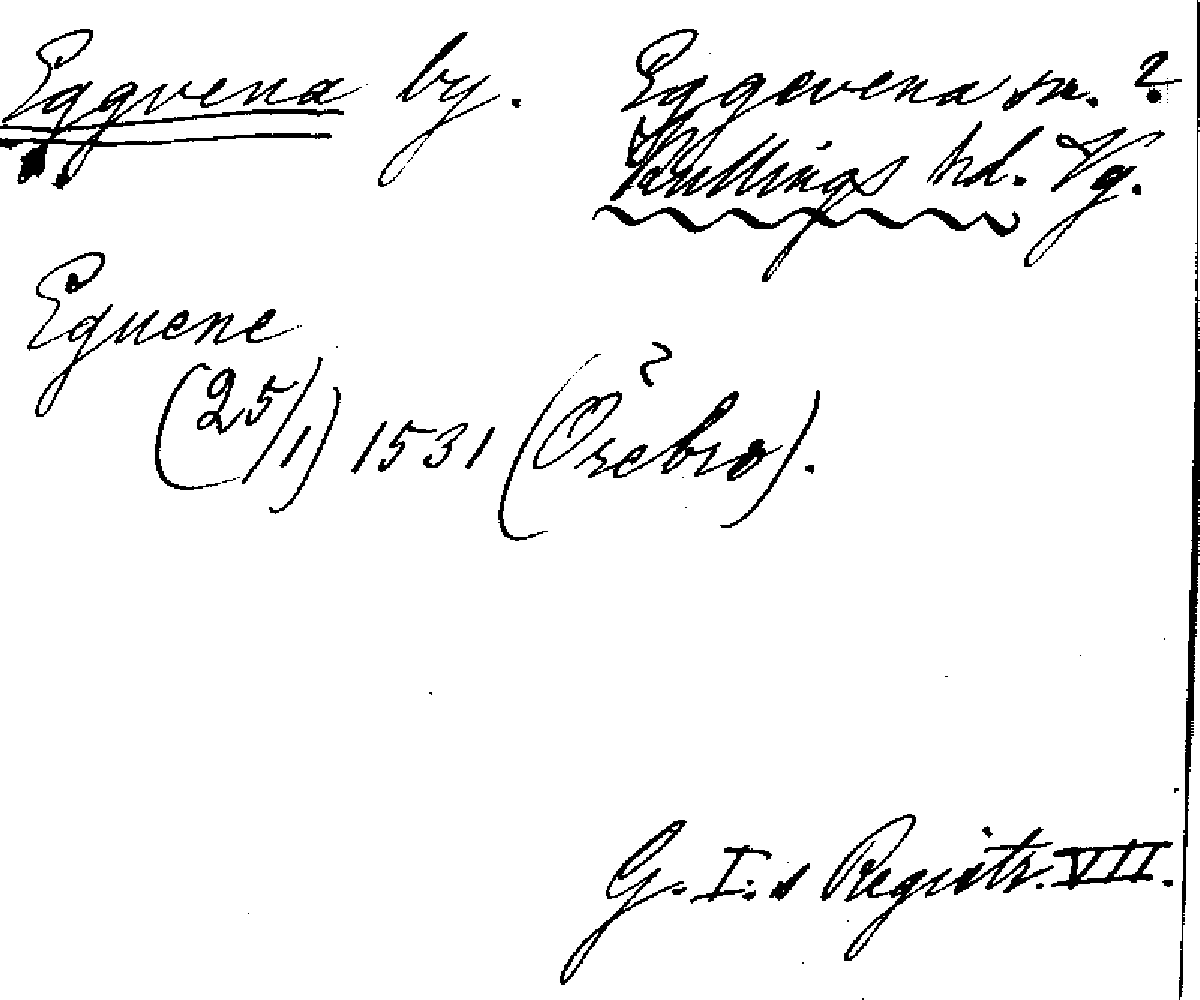 Eggvena by. Eggvena sn. ?
Kullings hd. Vg.
Eguene
(25/1) 1531 (Örebro).
G. I:s Registr. VII.